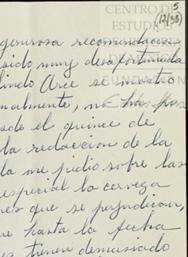 CENTRO DE
ESTUDIOS
5
(12/38)
generosa recomendacion
sido muy desafortunada
lindo Arce se mostró
nalmente, no ha pu
sde el quince de
la redaccion de la
la me pidio sobre las
especial la cerveza
res que se perjudican,
ue hasta la fecha
s tienen demasiado